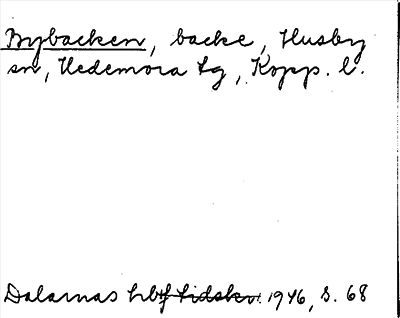 Bybacken, backe, Husby
sn, Hedemora tg, Kopp. l.
Dalarnas hbf tidskr. 1946, s. 68